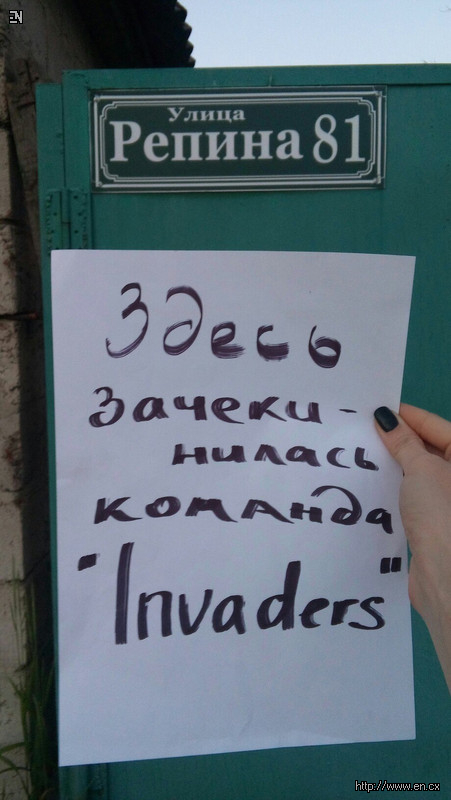 EN
Улица
Репина 81
Здесь
зачеки-
нилась
команда
"Invaders"
http://www.en.cx